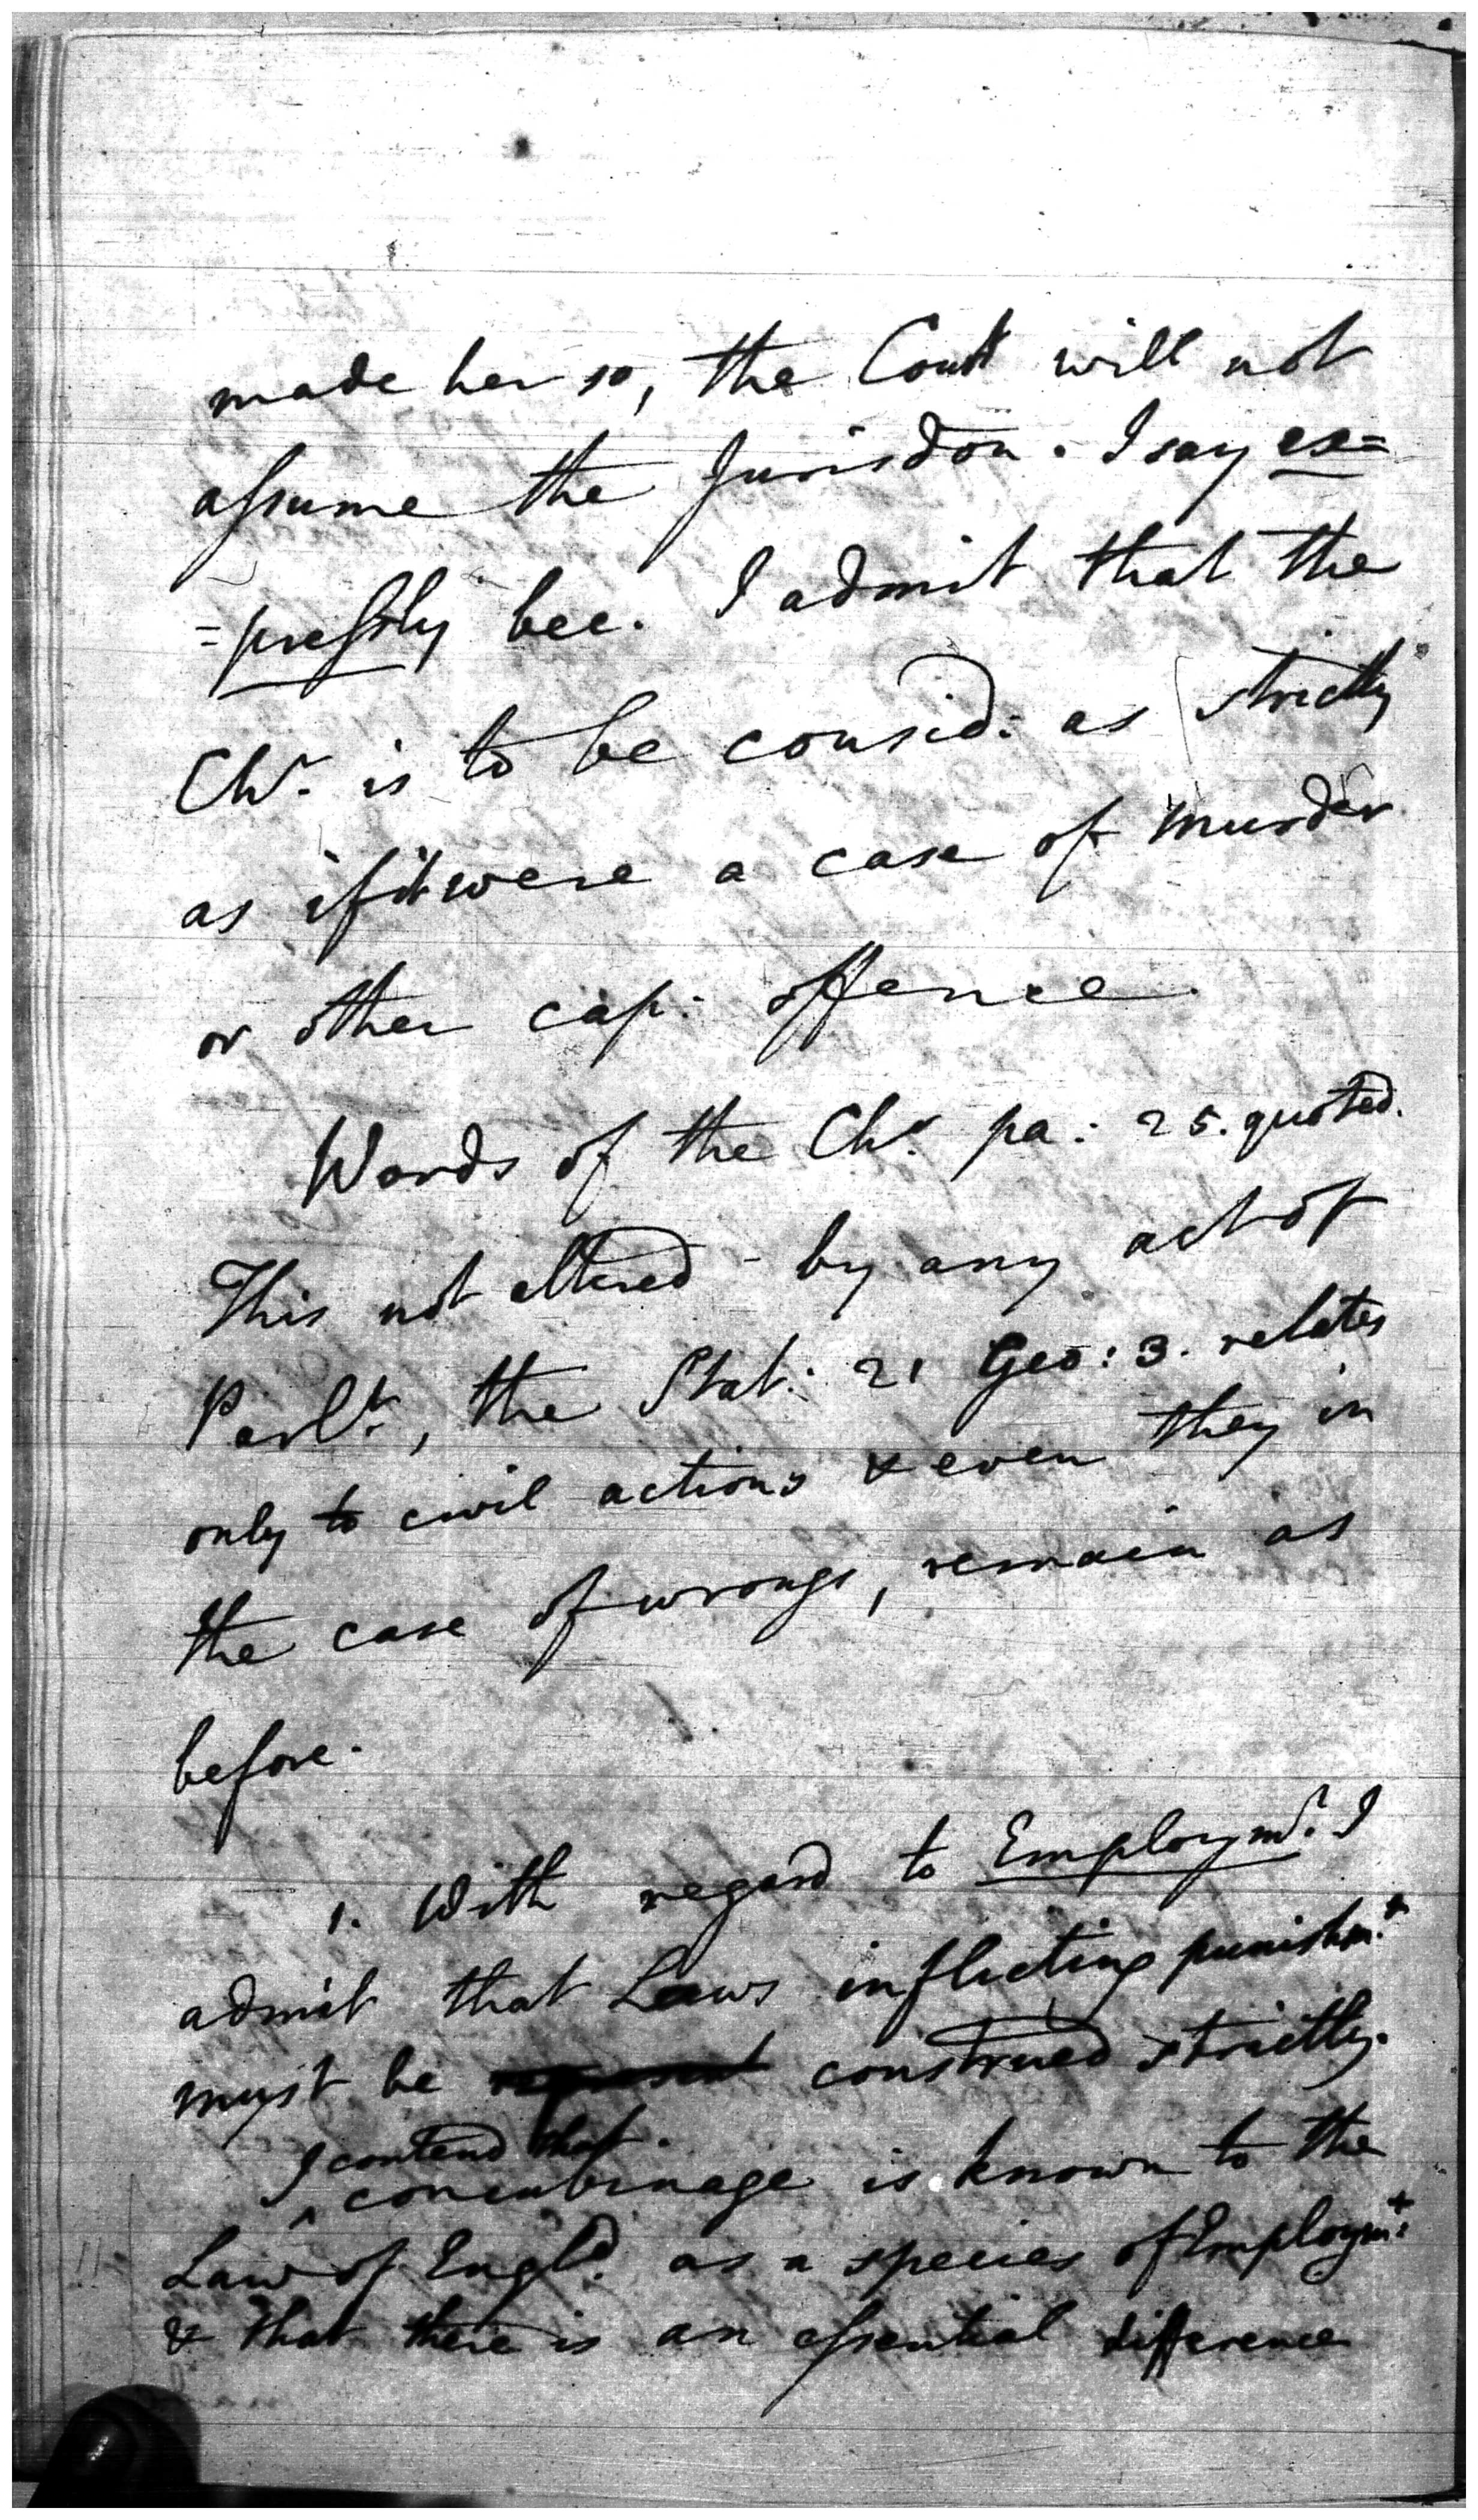 made her so, the Court will not
assume the Jurisdon. I say ex=
=pressly bec. I admit that the
Chr. is to be consid: as strictly
as if it were a case of murder
or other cap: offence.
Words of the Chr. pa: 25. quoted.
This not altered by any act of
Parlt., the Stat: 21 Geo: 3. relates
only to civil actions & even they in
the case of wrongs, remain as
before.
1. With regard to Employmt. I
admit that Laws inflicting punishmt.
must be construed strictly.
I contend that
concubinage is known to the
Law of Engld. as a species of Employmt:
& that there is an essential difference